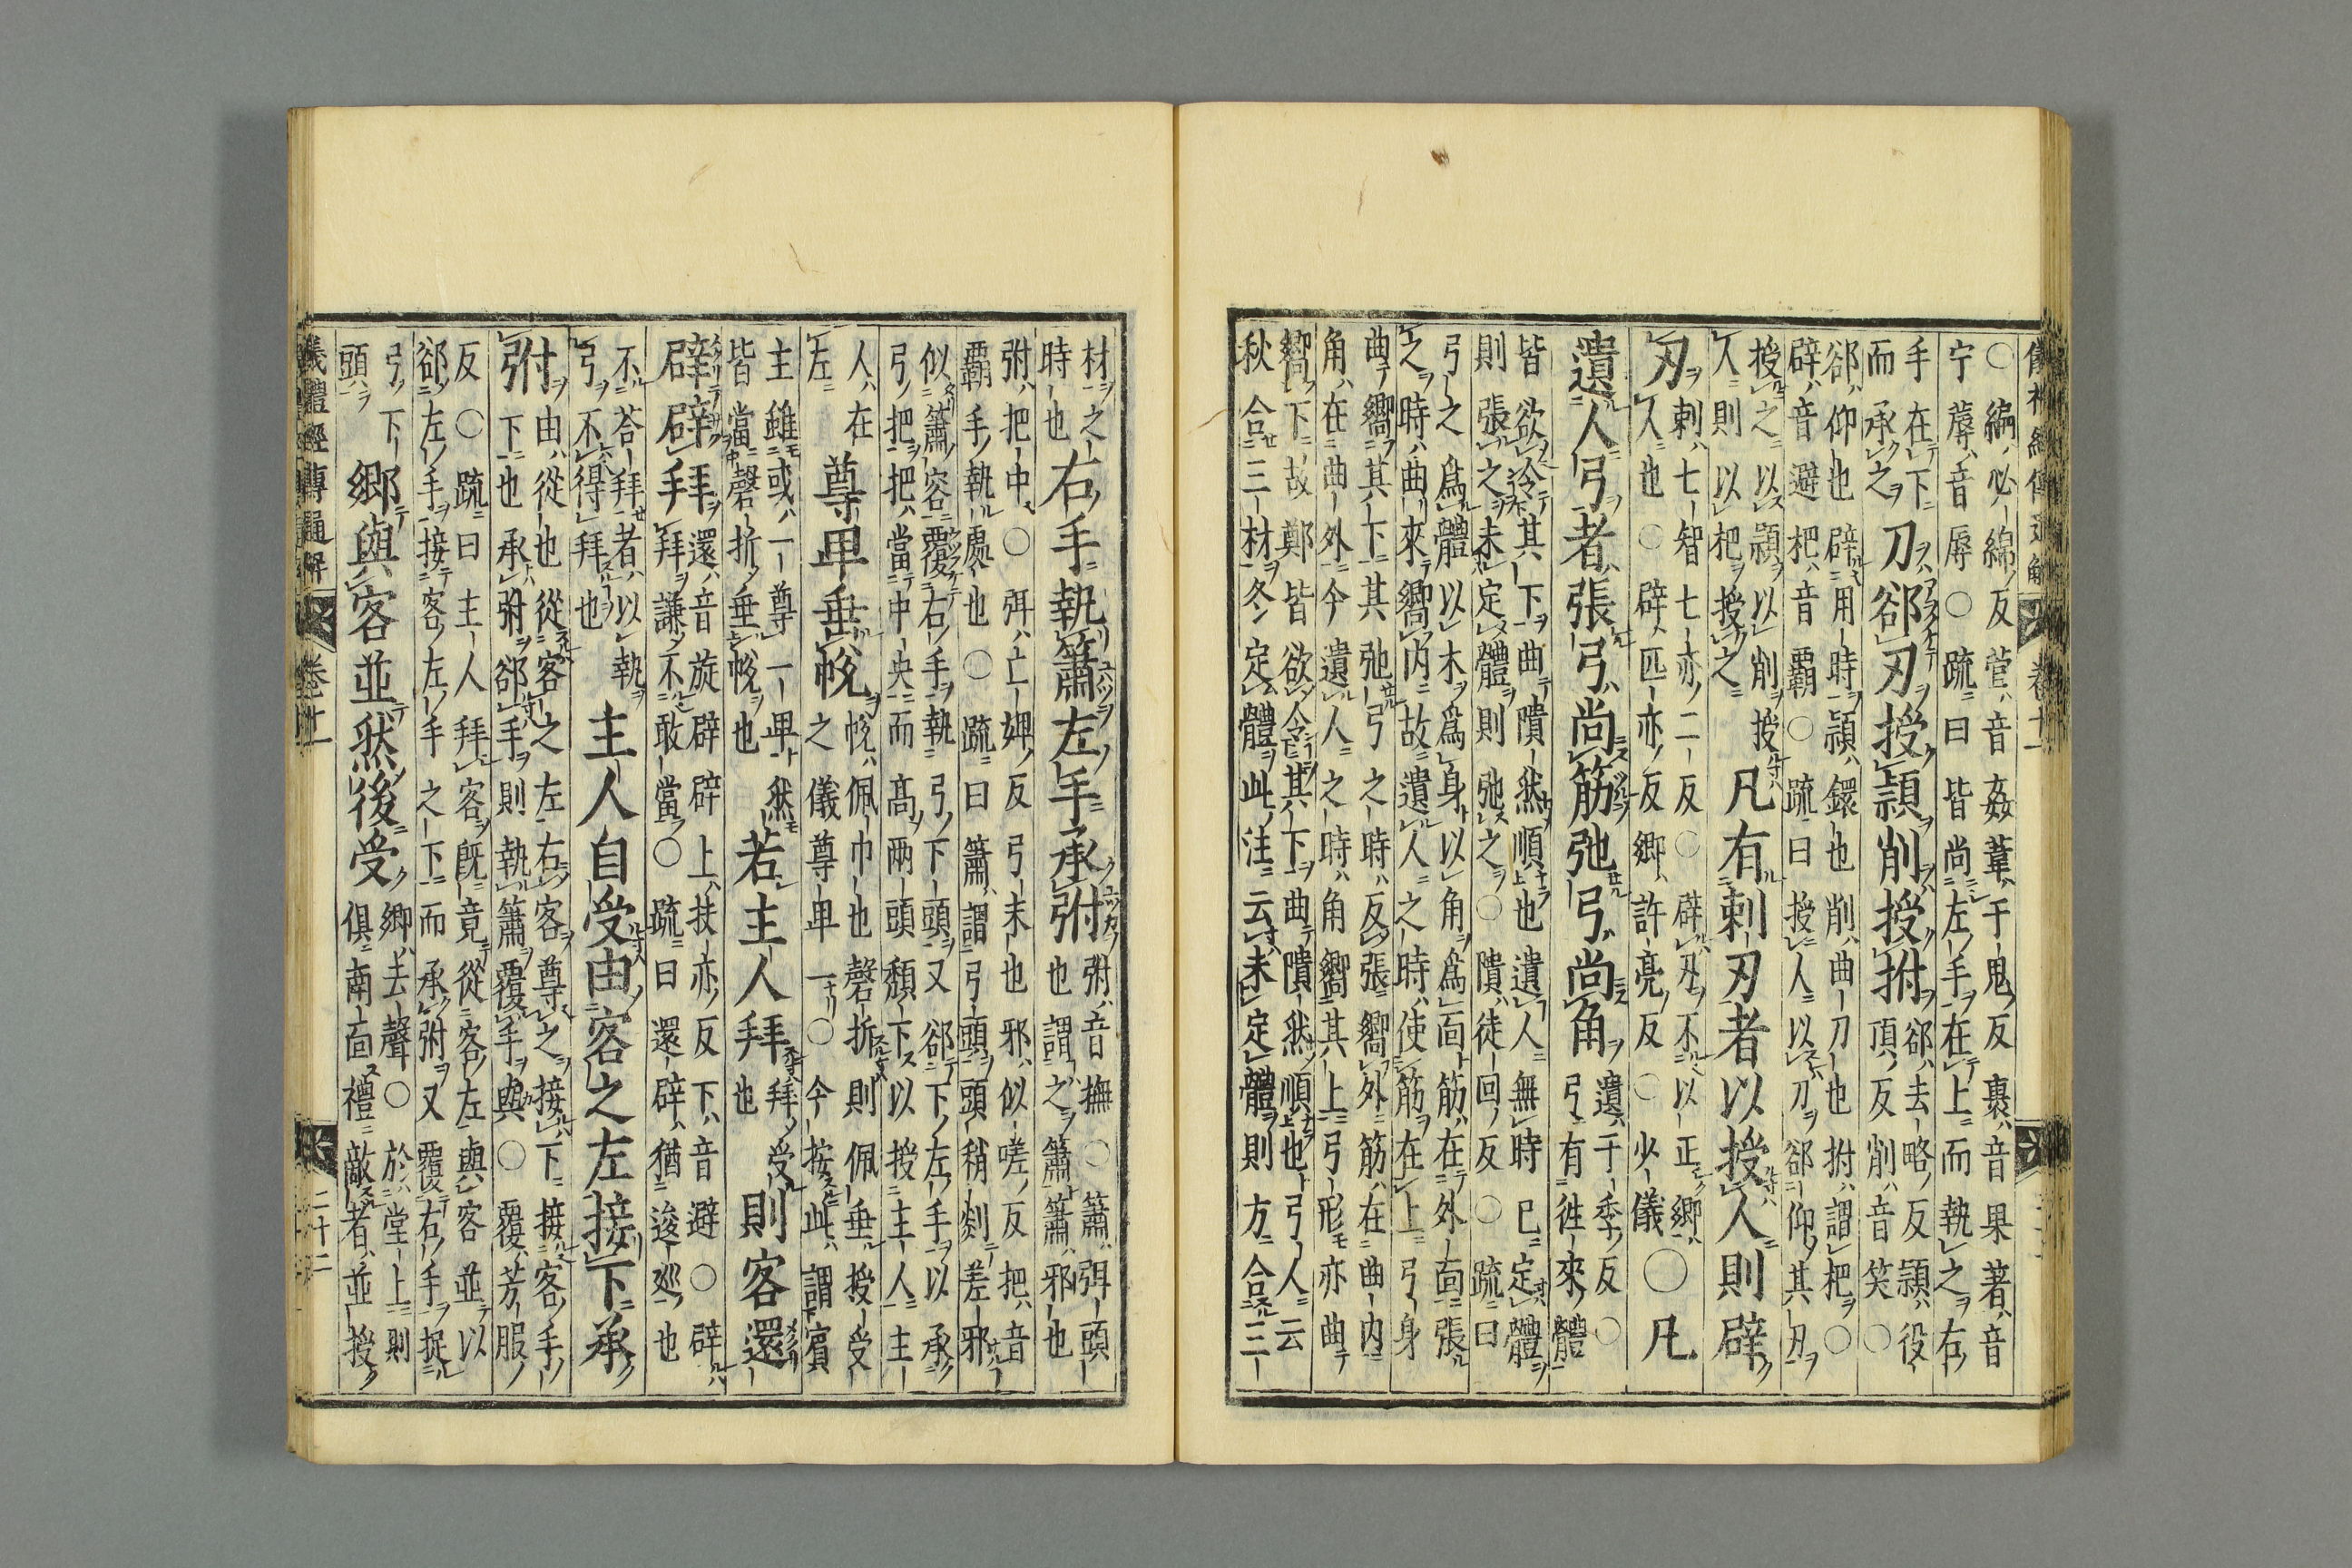 儀禮經傳通解 卷十一
○編必綿反菅音姦葦于鬼反裹音果著音
宁蓐音辱○疏曰皆尚左手在上而執之右
手在下
而承之
刀郤刃授穎削授拊
郤去略反穎役
頂反削音笑○
郤仰也辟用時穎鐶也削曲刀也拊謂把○
辟音避把音覇○疏曰授人以刀郤仰其刃
授之以穎以削授
人則以把授之
凡有刺刃者以授人則辟
刃
刺七智七亦二反○辟刃不以正鄉
人也○辟匹亦反鄉許亮反○少儀
○凡
遺人弓者張弓尚筋弛弓尚角
遺于季反○
弓有徃來體
皆欲冷其下曲隤然順也遺人無時已定體
則張之未定體則弛之○隤徒回反○疏曰
弓之爲體以木爲身以角爲面筋在外面張
之時曲來嚮内故遺人之時使筋在上弓身
曲嚮其下其弛弓之時反張嚮外筋在曲内
角在曲外今遺人之時角嚮其上弓形亦曲
嚮下故鄭皆欲令其下曲隤然順也弓人云
秋合三材冬定體此注云未定體則方合三
材之
時也
右手執簫左手承弣
弣音撫○簫弭頭
也謂之簫簫邪也
弣把中○弭亡婢反弓末也邪似嗟反把音
覇手執處也○疏曰簫謂弓頭頭稍剡差邪
似簫容覆右手執弓下頭又郤下左手以承
弓把把當中央而髙兩頭頹下以授主人主
人在
左
尊卑垂帨
帨佩巾也磬折則佩垂授受
之儀尊卑一○今按此謂賓
主雖或一尊一卑然
皆當磬折垂帨也
若主人拜
拜受
也
則客還
辟辟拜
還音旋辟辟上扶亦反下音避○辟
拜謙不敢當○疏曰還辟猶逡巡也
不荅拜者以執
弓不得拜也
主人自受由客之左接下承
弣
由從也從客之左右客尊之接下接客手
下也承弣郤手則執簫覆手與○覆芳服
反○疏曰主人拜客既竟從客左與客並以
郤左手接客左手之下而承弣又覆右手捉
弓下
頭
鄉與客並然後受
鄉去聲○於堂上則
俱南面禮敵者並授
儀禮經傳通解 卷十一 二十二